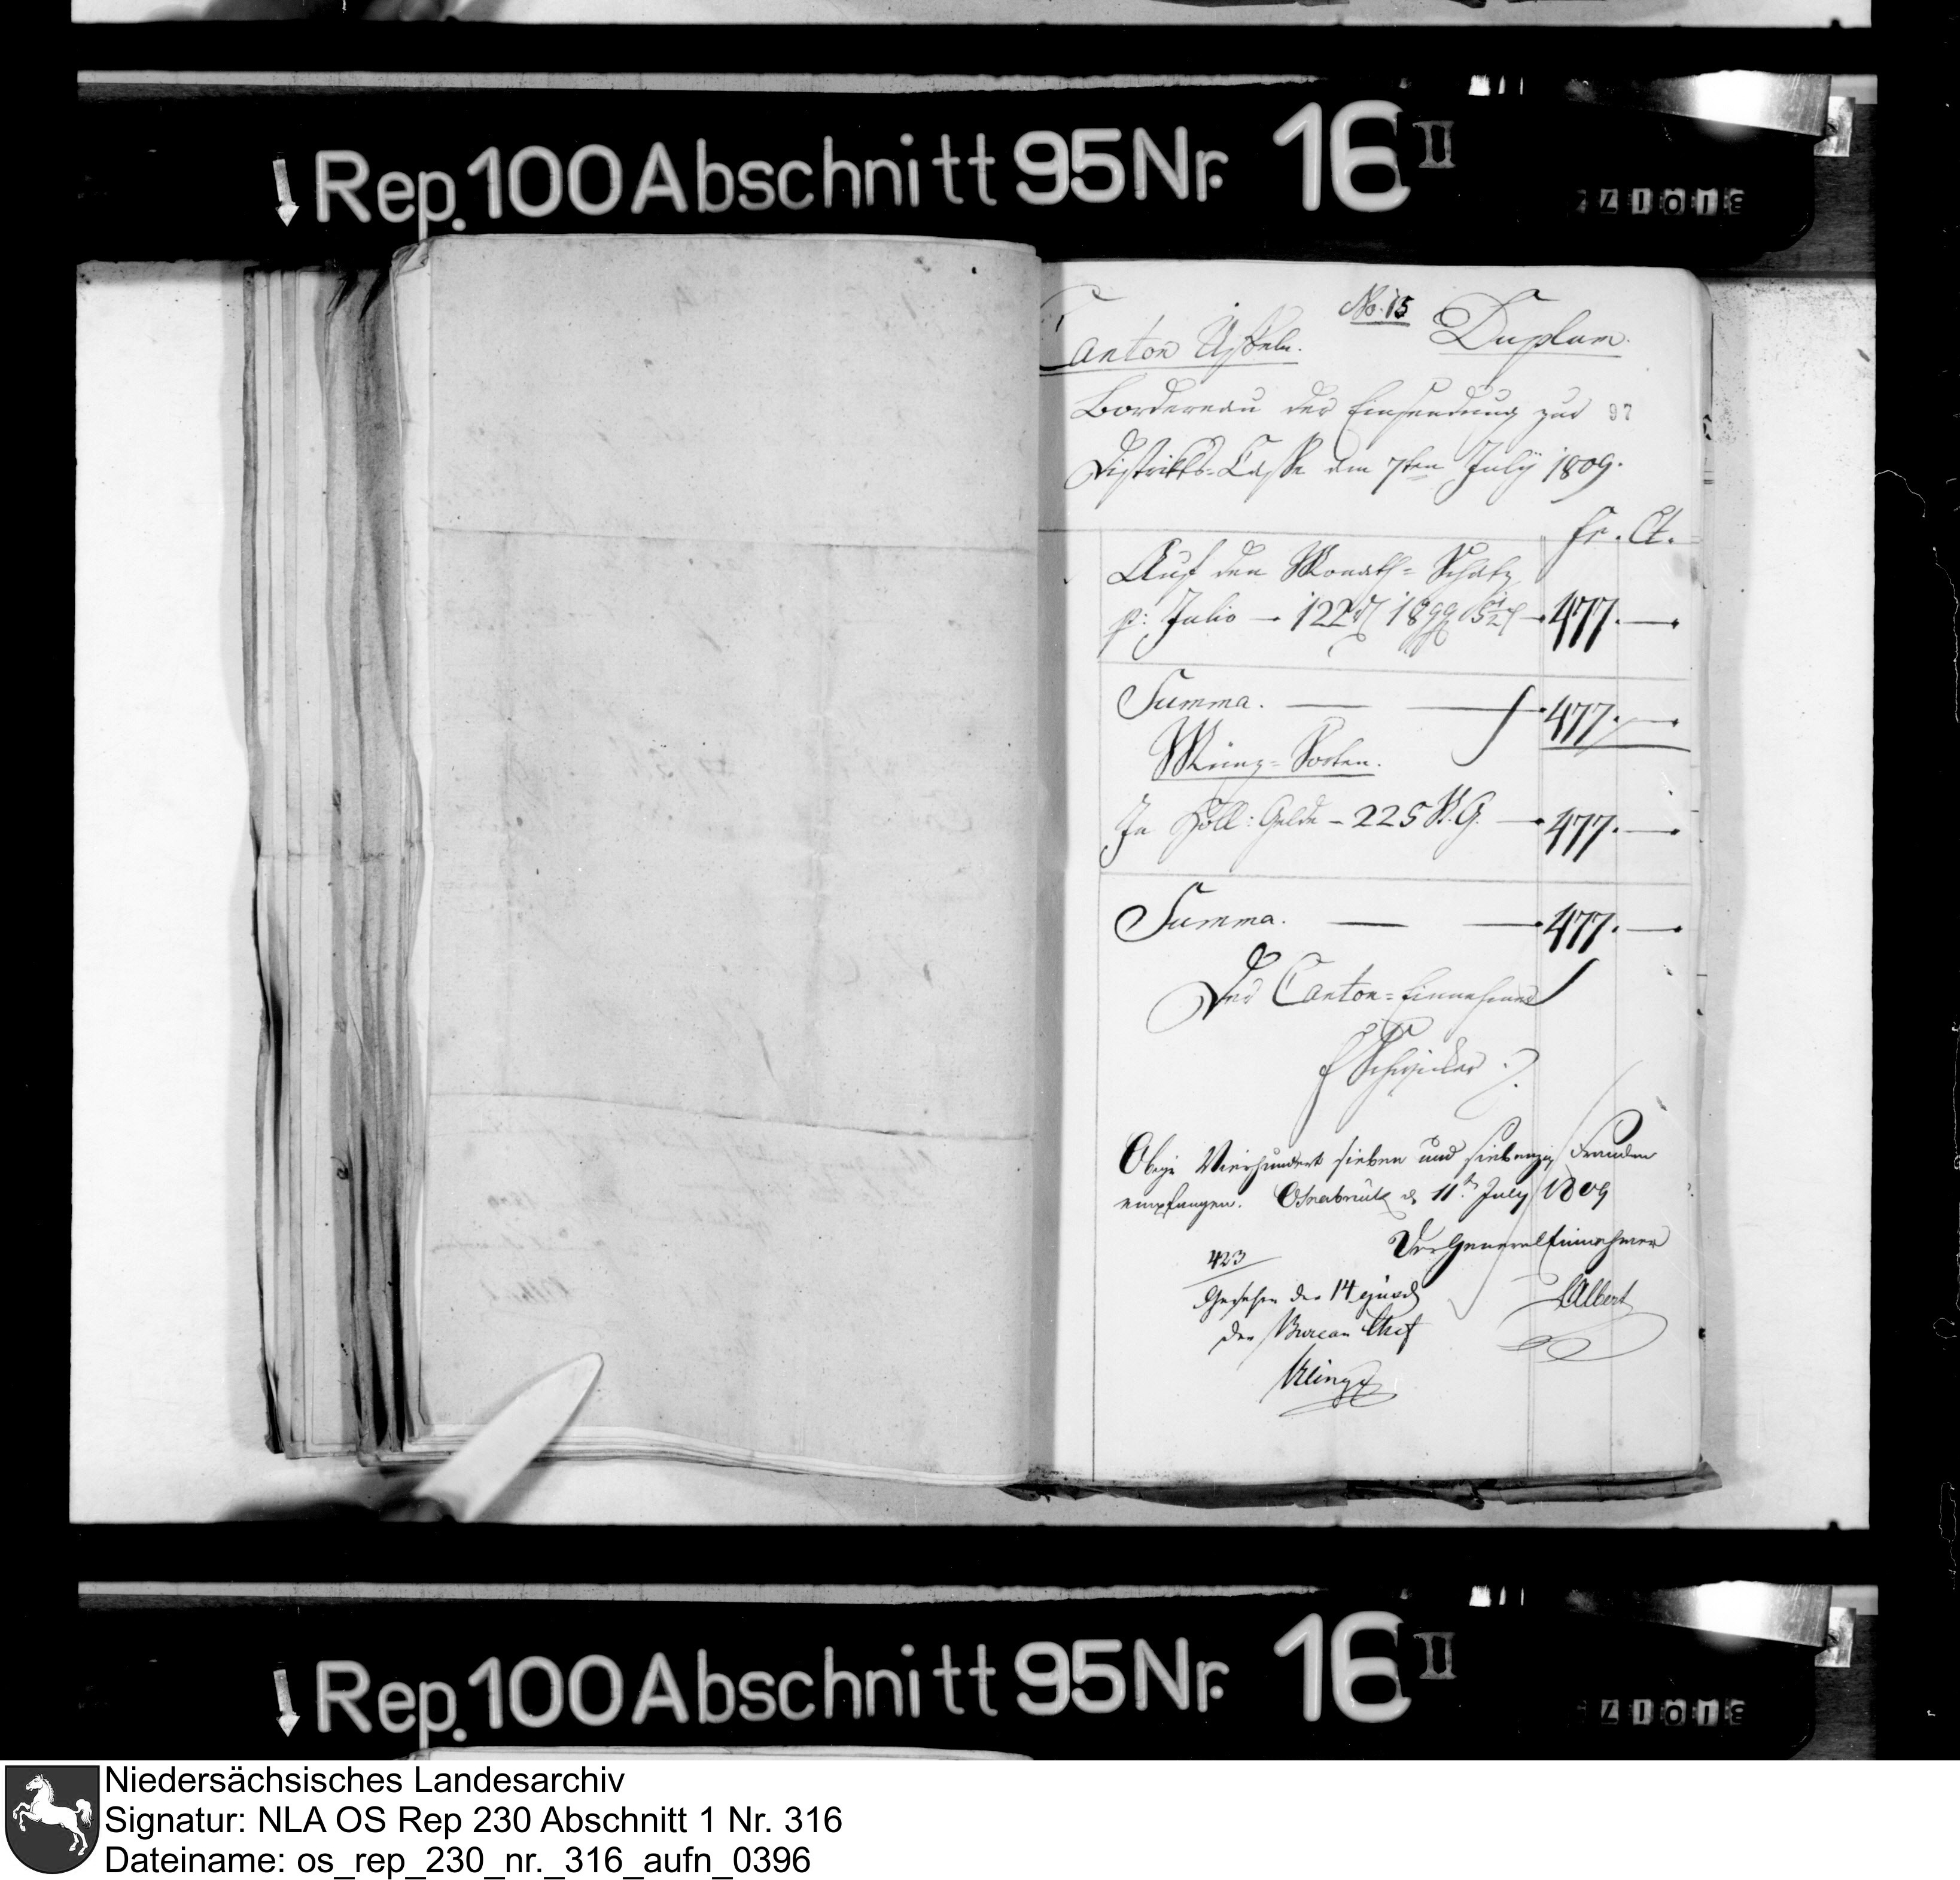 Rep. 100 Abschnitt 95 Nr. 16 II
No. 15
Duplum.
Canton Üffeln.
Bordereau der Einsendung zur
97
Distrikts-Casse am 7ten July 1809.
fr. Ct.
Auf den Monath-Schatz
p: Julio — 122 18 5 1/2 — 477. —
Summa. — — 477. —
Münz-Sorten.
In Holl: Gelde — 225 G. — 477. —
Summa. — — 477. —
Der Canton-Einnehmer
Obige Vierhundert sieben und siebenzig Franken
empfangen. Osnabrück d. 11t. July 1809
Der General Einnehmer
423
Albert
Gesehen den 14 ejusd
Der Bureau Chef
Rep. 100 Abschnitt 95 Nr. 16 II
Niedersächsisches Landesarchiv
Signatur: NLA OS Rep 230 Abschnitt 1 Nr. 316
Dateiname: os_rep_230_nr._316_aufn_0396